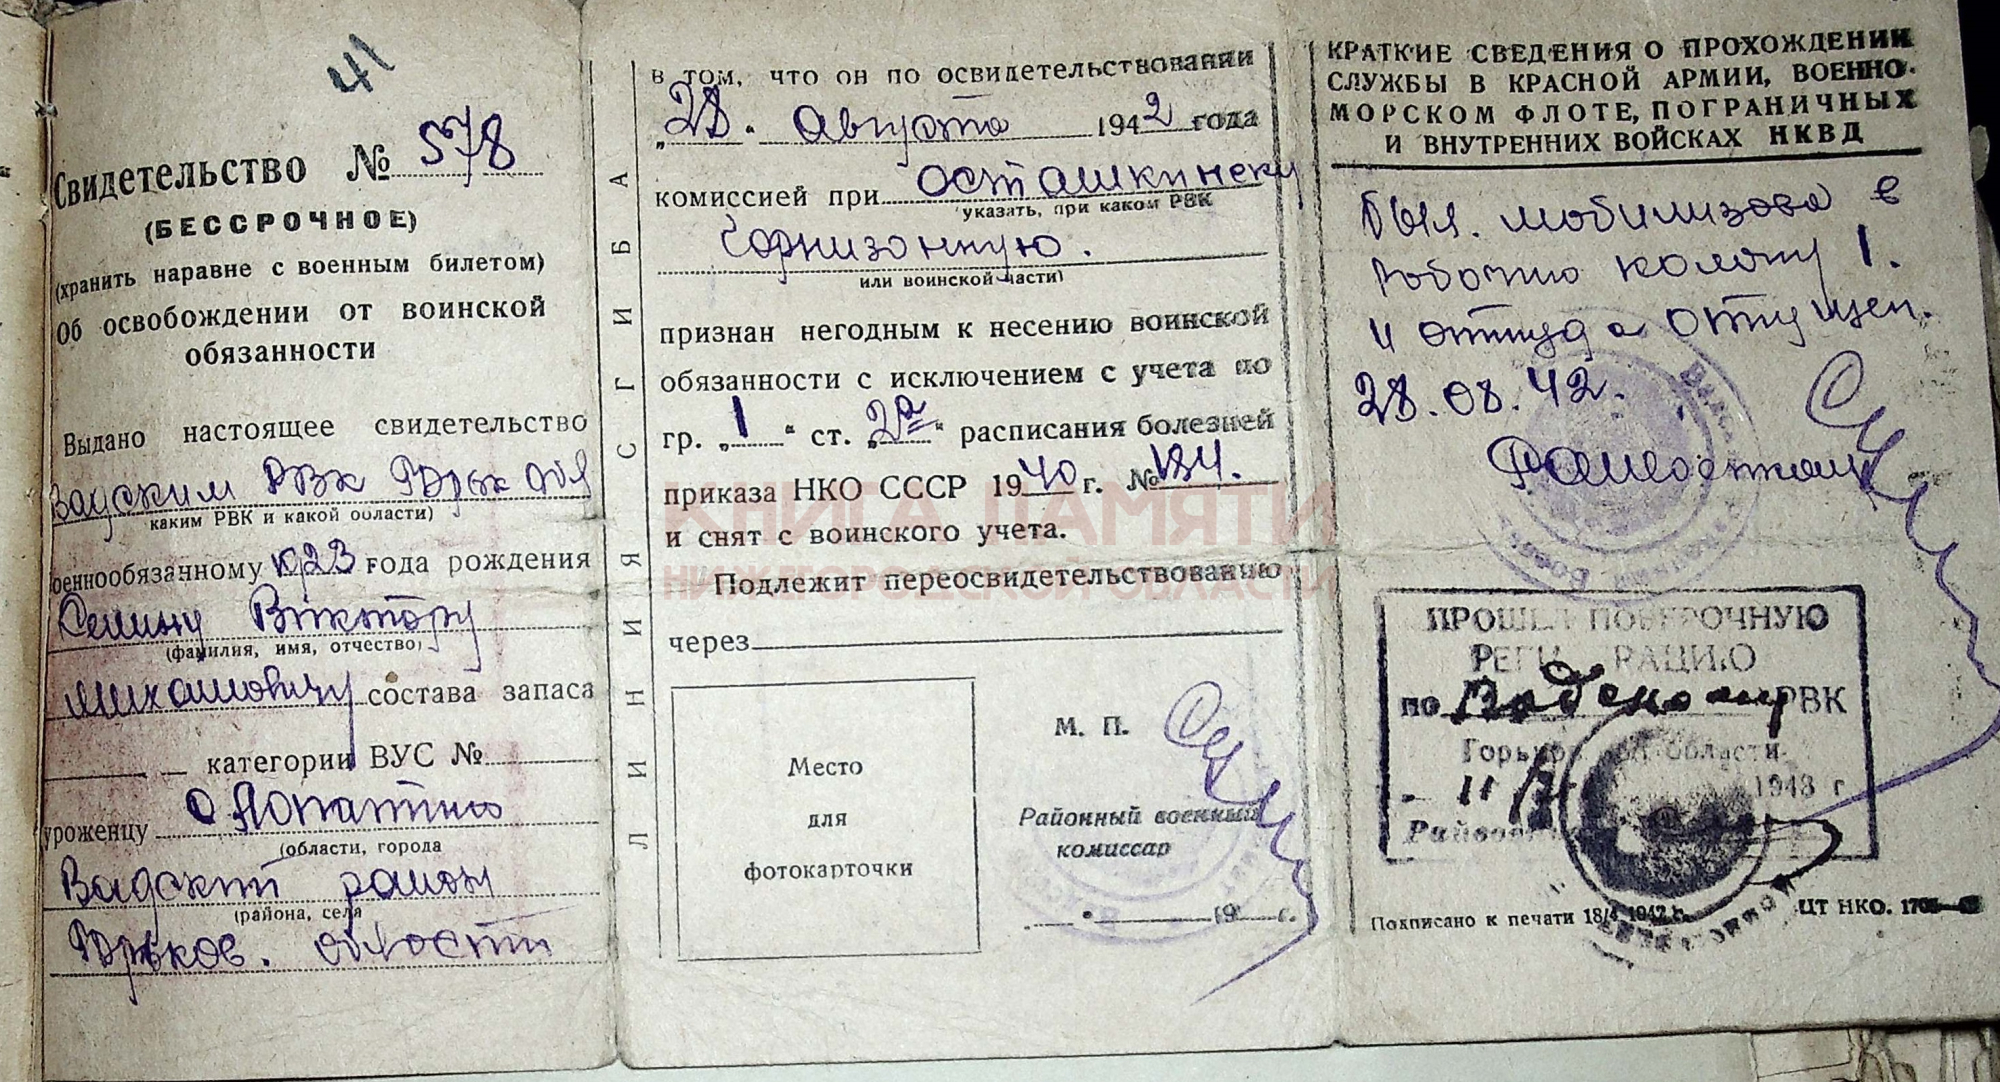 41
Свидетельство № 578
(БЕССРОЧНОЕ)
(хранить наравне с военным билетом)
Об освобождении от воинской
обязанности
Выдано настоящее свидетельство
Вадским РВК Горьк обл
каким РВК и какой области)
оеннообязанному 1923 года рождения
Виктору
(фамилия, имя, отчество)
Михайловичу состава запаса
категории ВУС №
уроженцу с Лопатино
(области, города
Вадский район
(района, села
Горьков. области
ЛИНИЯ СГИБА
в том, что он по освидетельствовании
„28" Августа 1942 года
комиссией при Осташкинску
указать, при каком РВК
Гарнизонную.
или воинской части)
признан негодным к несению воинской
обязанности с исключением с учета по
гр. „1" ст. „2а" расписания болезней
приказа НКО СССР 1940 г. № 184.
и снят с воинского учета.
Подлежит переосвидетельствованию
через
Место
для
фотокарточки
М. П.
Районный военный
комиссар
19 г.
КНИГА ПАМЯТИ
НИЖЕГОРОДСКОЙ ОБЛАСТИ
КРАТКИЕ СВЕДЕНИЯ О ПРОХОЖДЕНИИ
СЛУЖБЫ В КРАСНОЙ АРМИИ, ВОЕННО-
МОРСКОМ ФЛОТЕ, ПОГРАНИЧНЫХ
И ВНУТРЕННИХ ВОЙСКАХ НКВД
был. мобилизова в
рабочию колону 1.
и оттуда отпущен.
28.08.42.
ПРОШЕЛ ПОВЕРОЧНУЮ
РЕГИСТРАЦИЮ
по Вадскому РВК
Горьковской области
11 1943 г
Райвоен
Подписано к печати 18/4 1942 г.
ЦТ НКО.